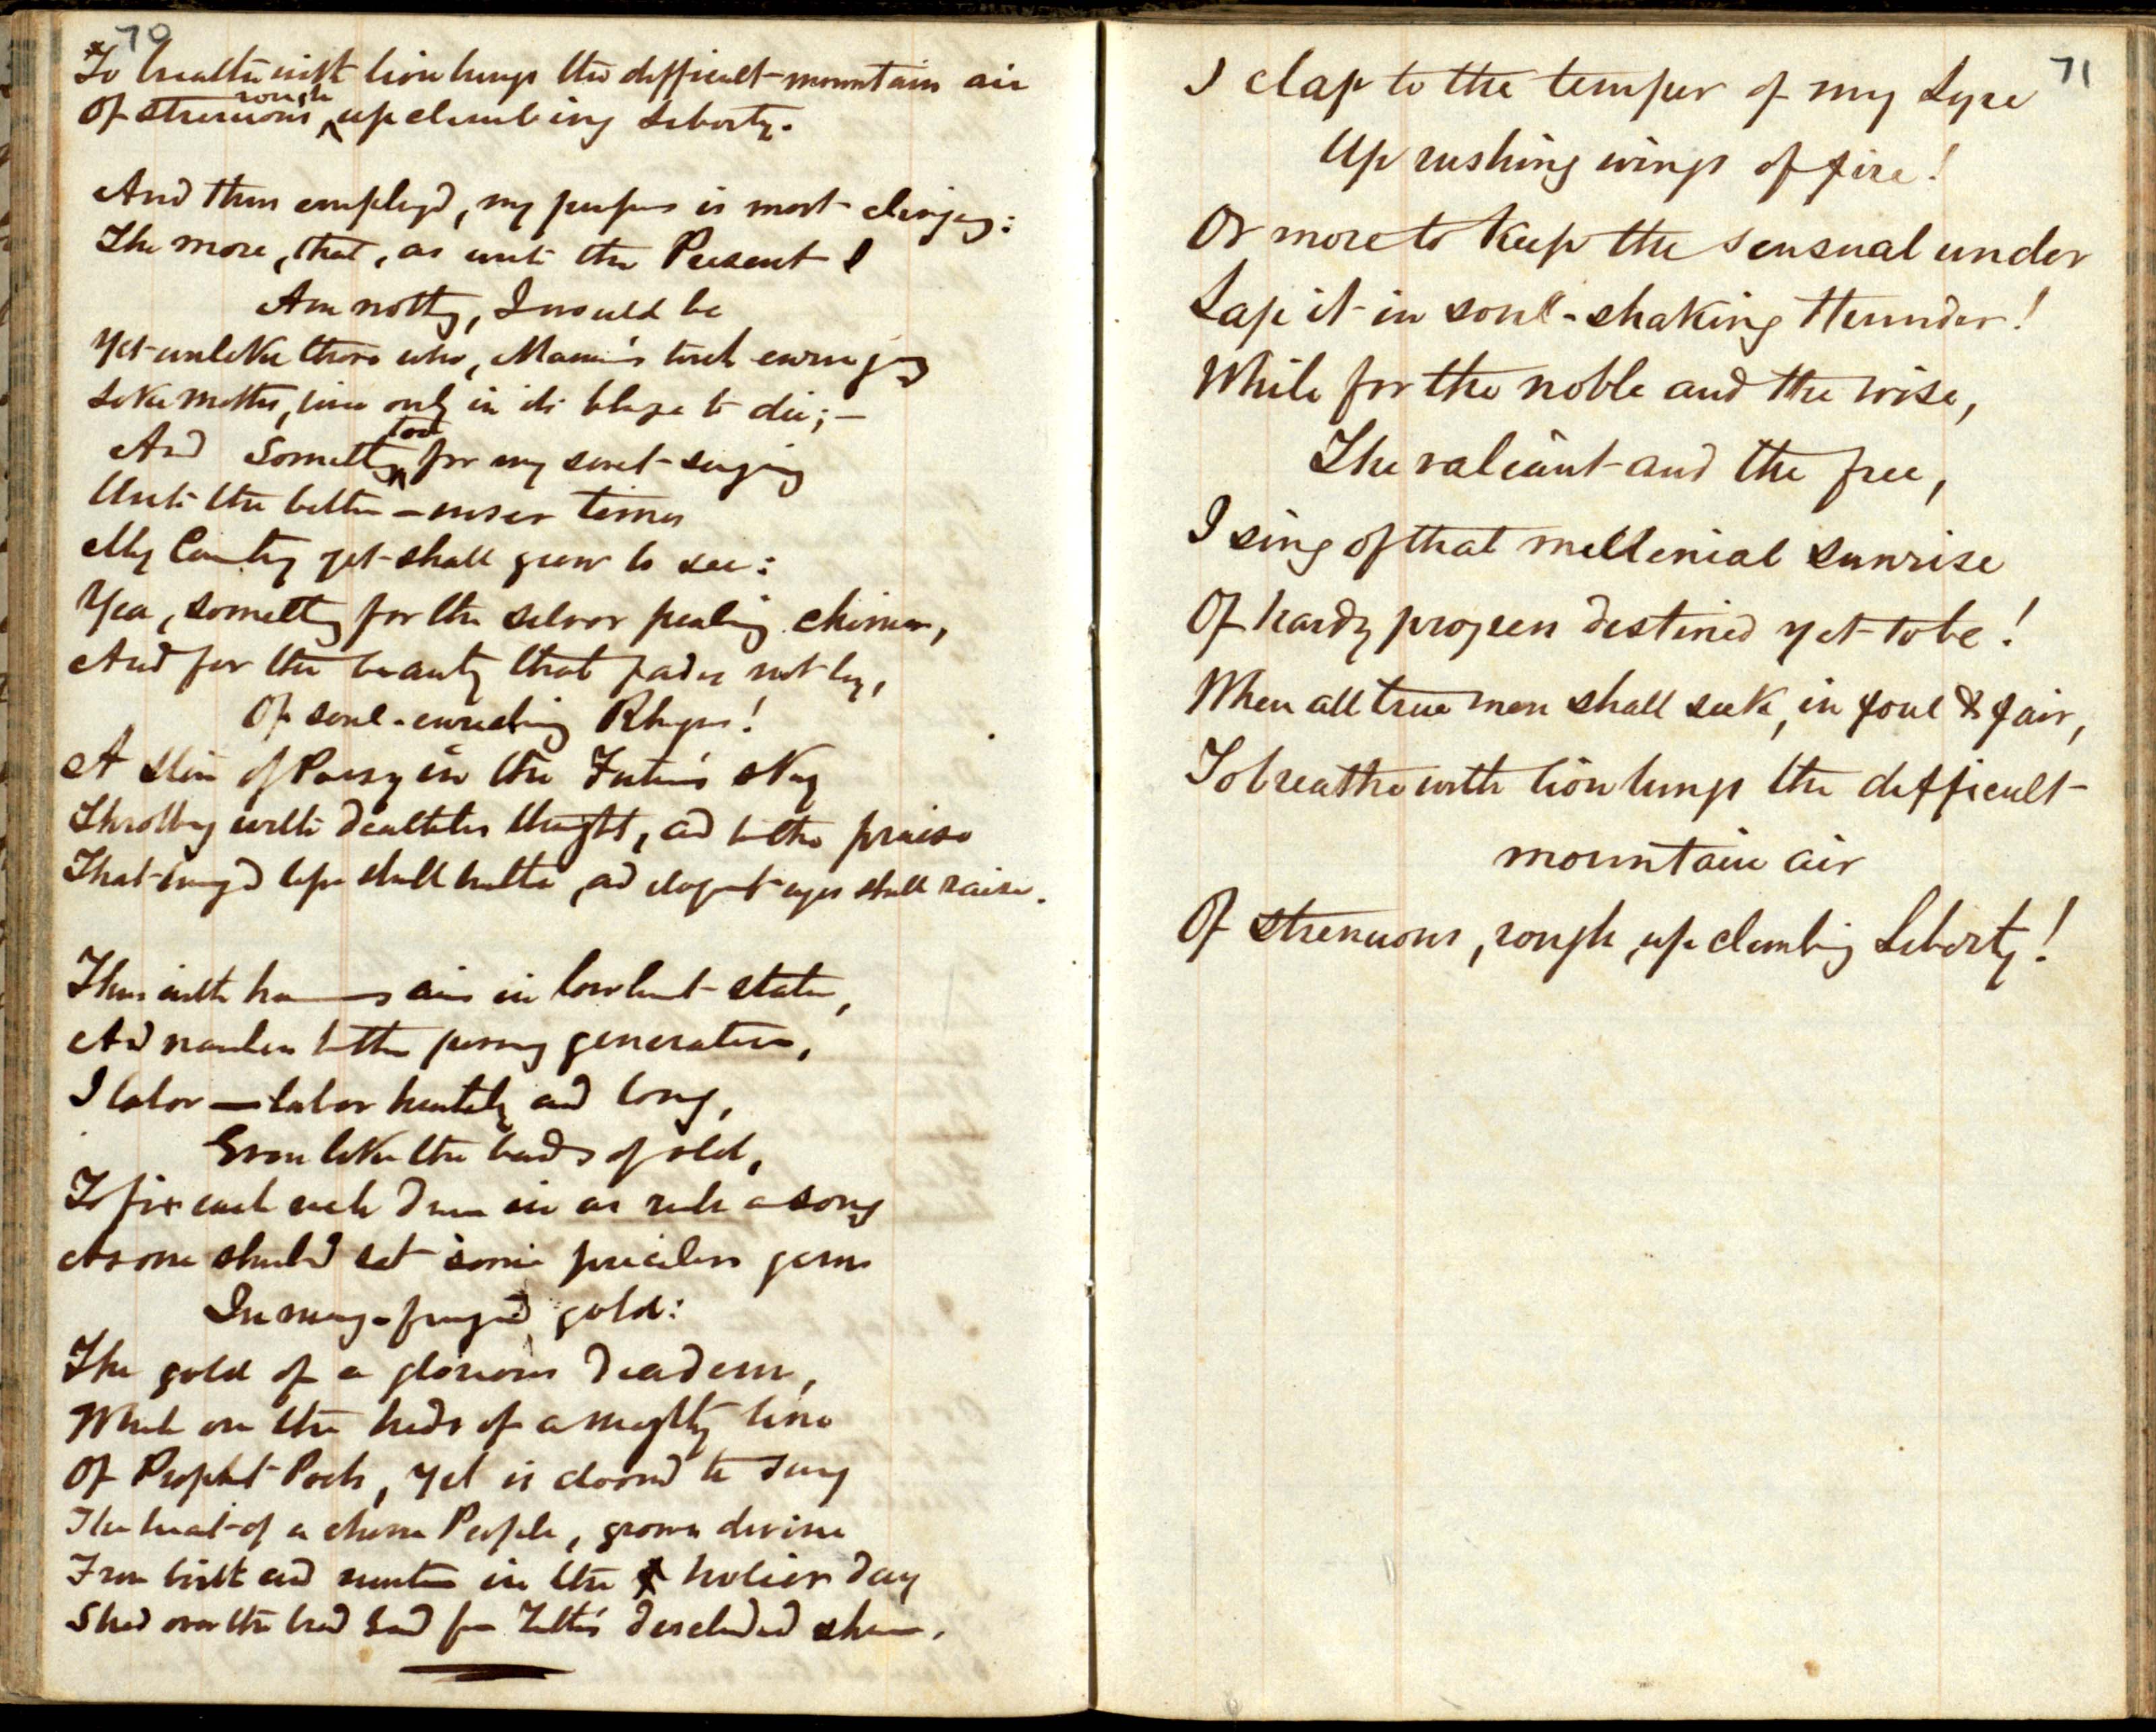 70
*To breathe with lion lungs the difficult mountain air
Of strenuous, rough upclimbing Liberty.
And thus employed, my purpose is most clinging:
The more, that, as with the Present I
Am nothing, I would be
Yet unlike those who, Mammon's torch
Like moths, live only in its blaze to die;—
And Something too for my sweet-singing
Until the better — nurser times
My Country yet shall grow to see:
Yea, something for the silver pealing chimes,
And for the beauty that fades not by,
Of soul-enriching Rhyme!
A Star of Poesy in the Future's sky
Throbbing with deathless thought, and to the praise
That lips shall utter, and eloquent eyes shall raise.
Thus with aim in lowliest state,
And nameless to the passing generation,
I labor — labor and long,
Even like the bards of old,
To fix each such in as rich a song
As one should set some priceless gems
In gold:
The gold of a glorious diadem,
Which on the heads of a mighty line
Of Prophet-Poets, yet is doomed to sway
The heart of a chosen People, grown divine
From birth and nurture in the holier day
Shed over the broad Land from Truth's shrine.
71
I clap to the temper of my Lyre
Up rushing wings of fire!
Or more to keep the sensual under
Lap it in soul-shaking thunder!
While for the noble and the wise,
The valiant and the free,
I sing of that mellenial sunrise
Of hardy progress destined yet to be!
When all true men shall seek, in foul & fair,
To breathe with lion lungs the difficult-
mountain air
Of strenuous, rough, up climbing Liberty!